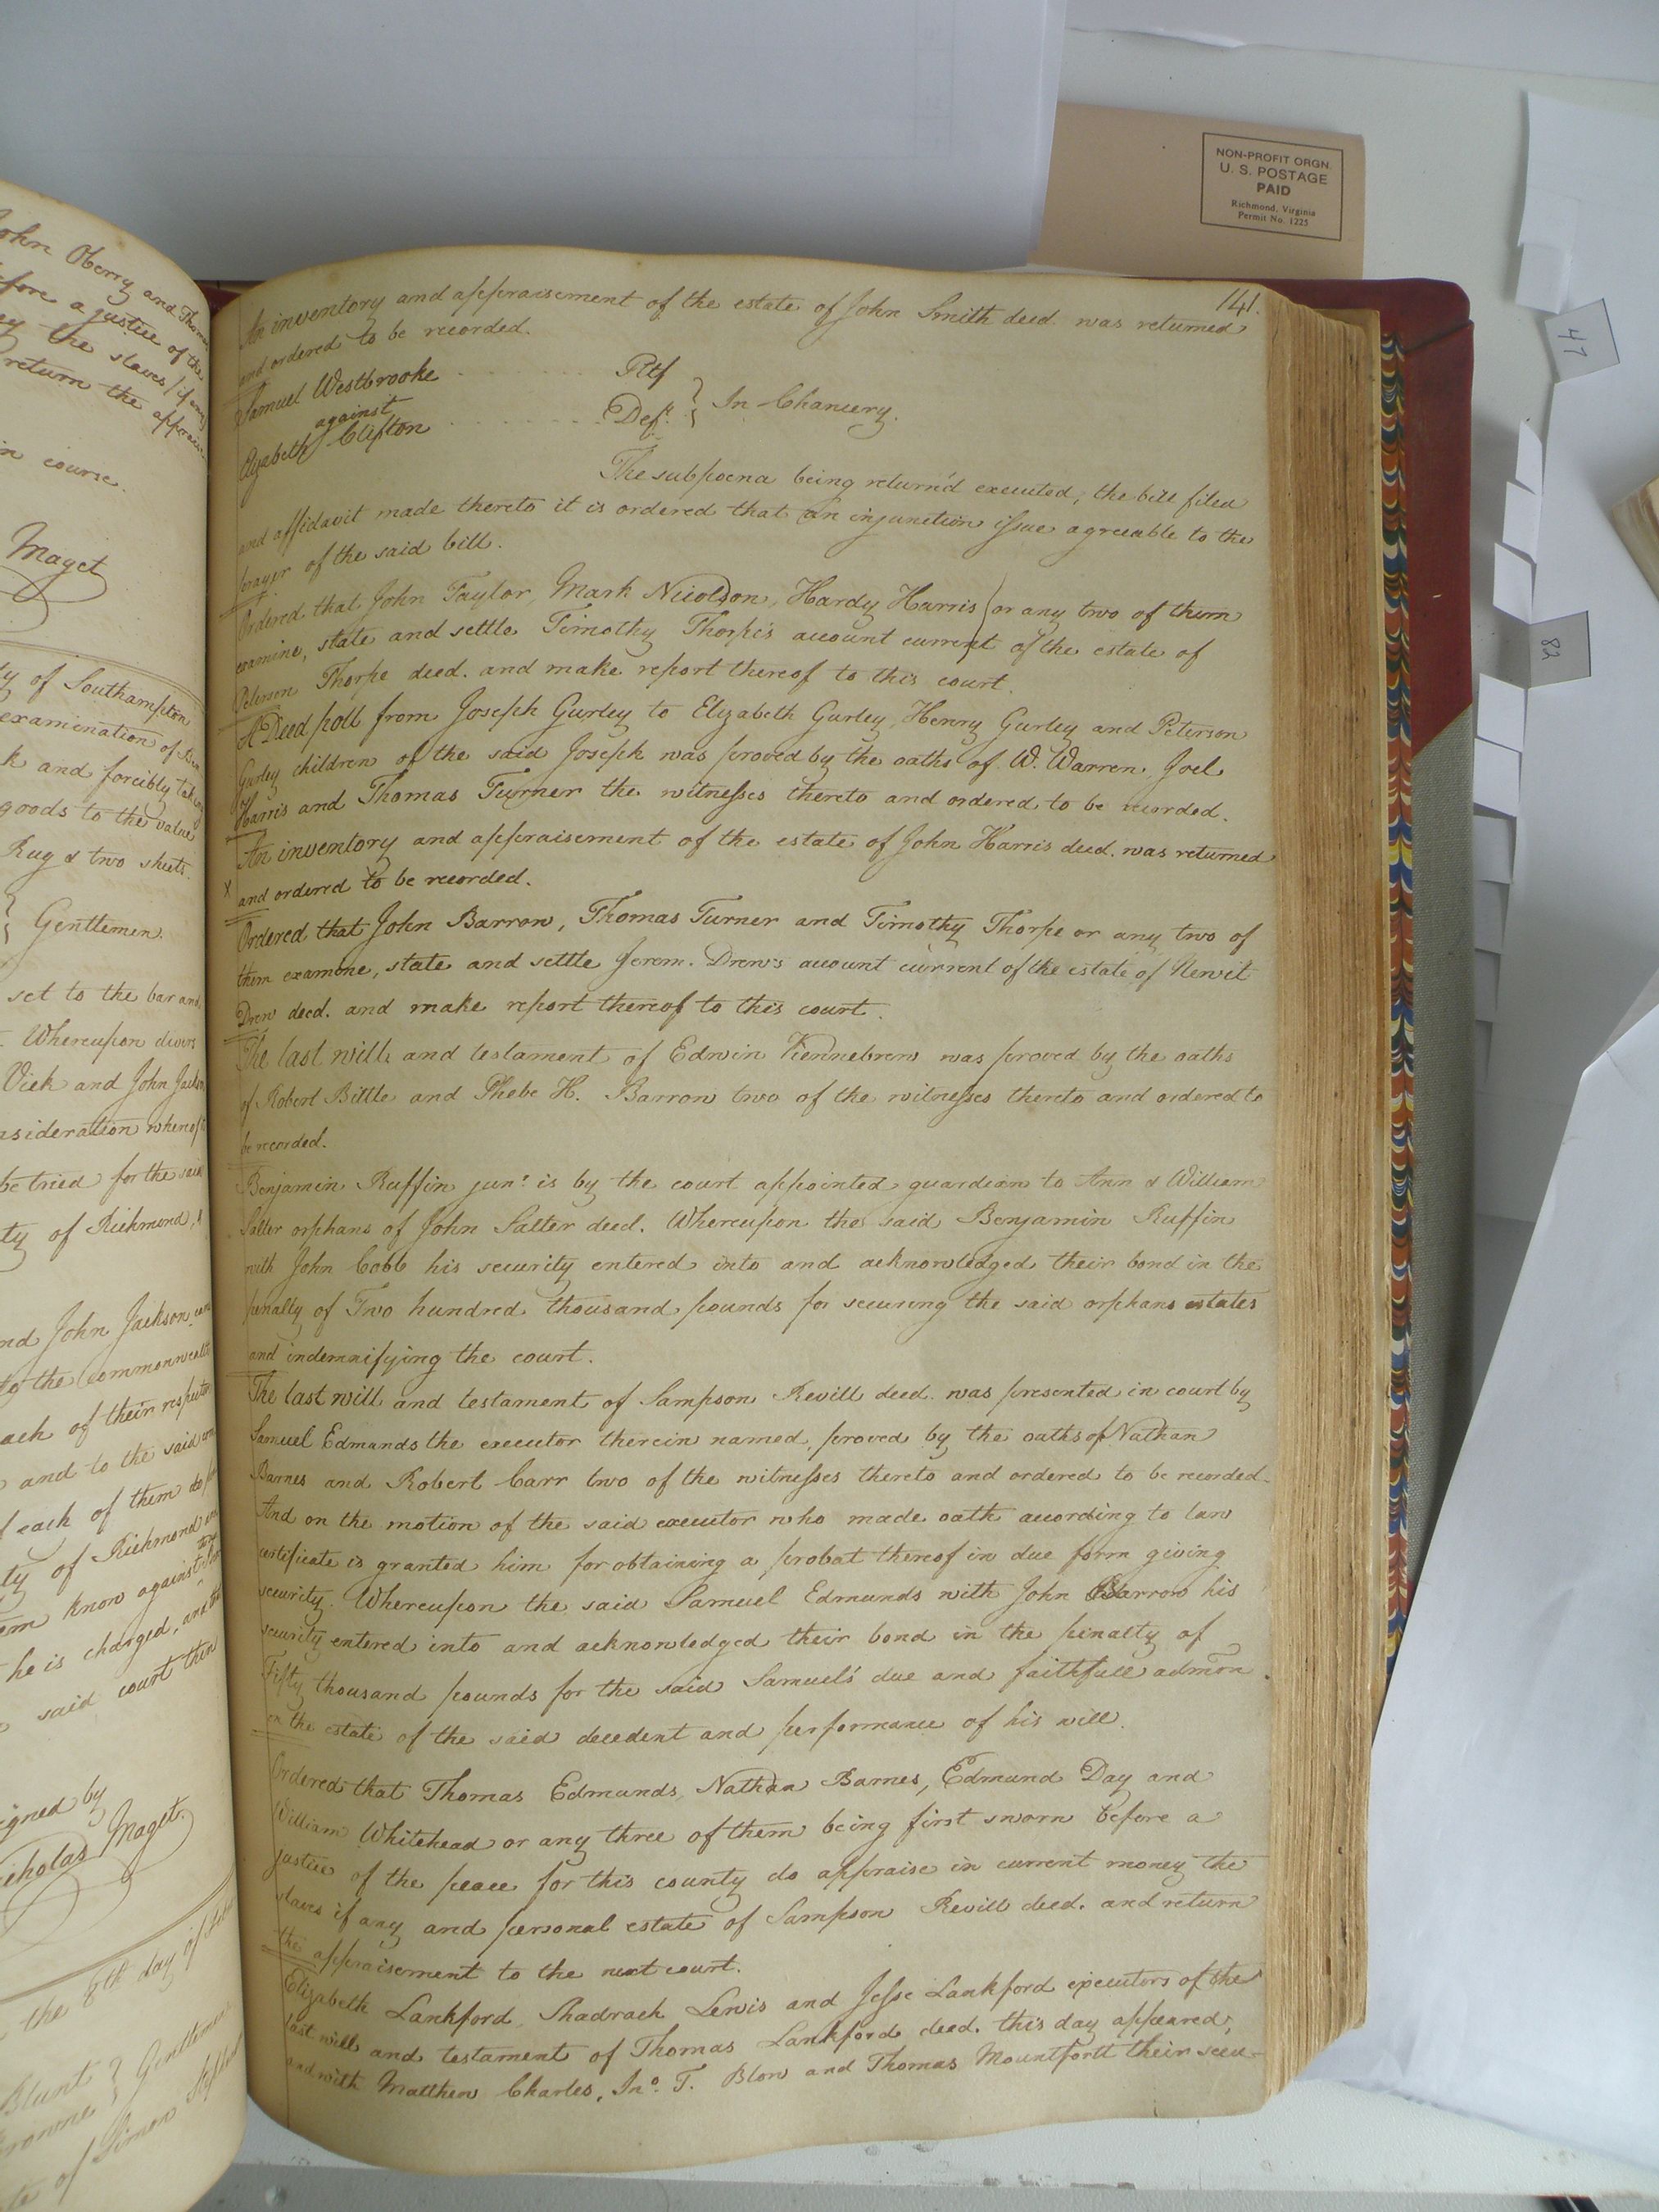 NON-PROFIT ORGN.
U. S. POSTAGE
PAID
Richmond, Virginia
Permit No. 1225
47
82
John Oberry and Thomas
before a justice of the
the slaves / if any
return the appraise-
in course.
Maget
ty of Southampton
examination of
k and forcibly
goods to the value
Rug & two sheets.
Gentlemen.
set to the bar and
Whereupon divers
Vick and John Jackson
consideration whereof
be tried for the said
ty of Richmond,
and John Jackson
to the commonwealth
each of their respective
and to the said
each of them do
ty of Richmond
know against
he is charged, and
said court then
signed by
Nicholas Maget.
the 8th day of
Blunt } Gentlemen
of Simon
141.
An inventory and appraisement of the estate of John Smith deed. was returned
and ordered to be recorded.
Samuel Westbrooke . . . . . . Pltf
against } In Chancery.
Elizabeth Clifton . . . . . . . Deft.
The subpoena being return'd executed, the bill filed
and affidavit made thereto it is ordered that an injunction issue agreeable to the
prayer of the said bill.
Ordered that John Taylor, Mark Nicolson, Hardy Harris or any two of them
examine, state and settle Timothy Thorpe's account current of the estate of
Peterson Thorpe deed. and make report thereof to this court.
A Deed poll from Joseph Gurley to Elizabeth Gurley, Henry Gurley and Peterson
Gurley children of the said Joseph was proved by the oaths of W. Warren, Joel
Harris and Thomas Turner the witnesses thereto and ordered to be recorded.
An inventory and appraisement of the estate of John Harris deed. was returned
x and ordered to be recorded.
Ordered that John Barrow, Thomas Turner and Timothy Thorpe or any two of
them examine, state and settle Jerem. Drew's account current of the estate of Newit
Drew deed. and make report thereof to this court.
The last will and testament of Edwin Kiennebrew was proved by the oaths
of Robert Bittle and Phebe H. Barrow two of the witnesses thereto and ordered to
be recorded.
Benjamin Ruffin junr. is by the court appointed guardian to Ann & William
Salter orphans of John Salter deed. Whereupon the said Benjamin Ruffin
with John Cobb his security entered into and acknowledged their bond in the
penalty of Two hundred thousand pounds for securing the said orphans estates
and indemnifying the court.
The last will and testament of Sampson Revill deed. was presented in court by
Samuel Edmunds the executor therein named, proved by the oaths of Nathan
Barnes and Robert Carr two of the witnesses thereto and ordered to be recorded.
And on the motion of the said executor who made oath according to law
certificate is granted him for obtaining a probat thereof in due form giving
security. Whereupon the said Samuel Edmunds with John Barrow his
security entered into and acknowledged their bond in the penalty of
Fifty thousand pounds for the said Samuel's due and faithfull admon.
on the estate of the said decedent and performance of his will.
Ordered that Thomas Edmunds, Nathan Barnes, Edmund Day and
William Whitehead or any three of them being first sworn before a
justice of the peace for this county do appraise in current money the
slaves if any and personal estate of Sampson Revill deed. and return
the appraisement to the next court.
Elizabeth Lankford, Shadrach Lewis and Jesse Lankford executors of the
last will and testament of Thomas Lankford deed. this day appeared,
and with Matthew Charles, Jno. T. Blow and Thomas Mountfortt their secu-